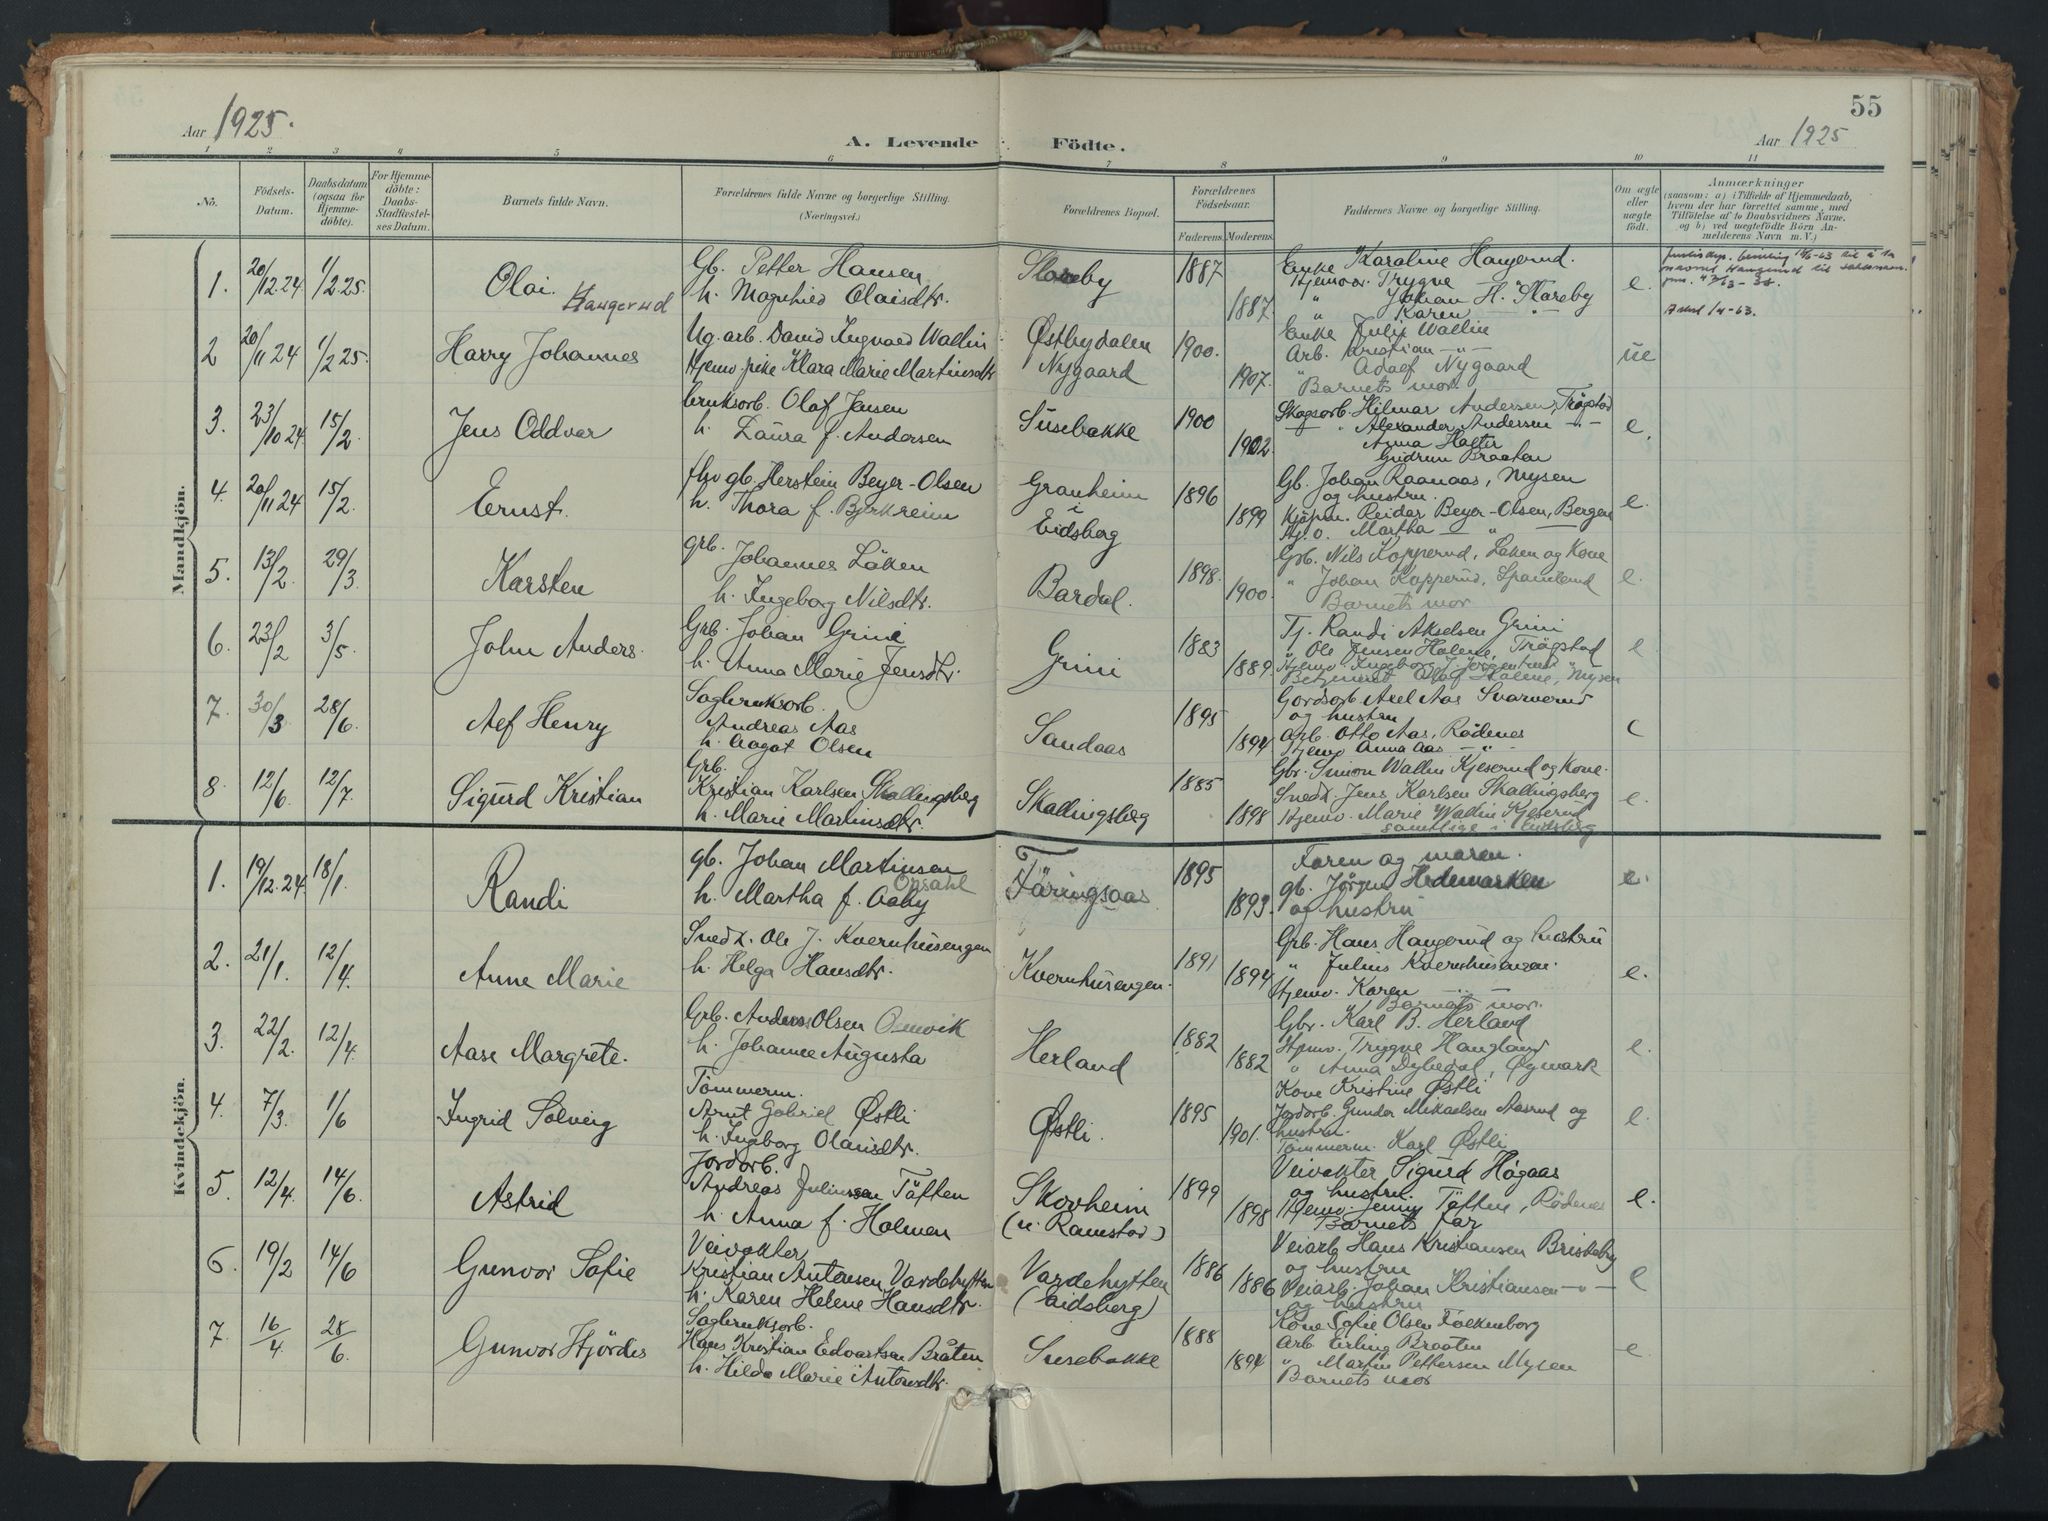 55
Aar 1925. A. Levende Födte. Aar 1925
1 2 3 4 5 6 7 8 9 10 11
No. Födsels-Datum. Daabsdatum (ogsaa for Hjemmedöbte). For Hjemmedöbte: Daabs-Stadfæstelses Datum. Barnets fulde Navn. Forældrenes fulde Navne og borgerlige Stilling. (Næringsvei.) Forældrenes Bopæl. Forældrenes Födselsaar. Faderens. Moderens. Faddernes Navne og borgerlige Stilling. Om ægte eller uægte födt. Anmærkninger (saasom: a) i Tilfælde af Hjemmedaab, hvem der har forrettet samme, med Tilföielse af to Daabsvidners Navne, og b) ved uægtefödte Börn Anmelderens Navn m. V.)
Mandkjön.
1. 20/12.24 1/2.25. Olai. Haugerud
Gb. Petter Hansen
h. Magnhild Olaisdtr.
Slareby 1887 1887.
Enke Karoline Haugerud.
Hjemov. Trygve
" Johan H. Slareby
" Karen — " —
e.
2 20/11 24 1/2 25. Harry Johannes
Ug. arb. David Ingvald Wallin
Hjemv. pike Klara Marie Martinsdtr
Østbydalen
Nygaard
1900. 1907.
Enke Julie Wallin
Arb. Kristian — " —
" Adolf Nygaard
Barnets mor.
ue
3. 23/10 24 15/2. Jens Oddvar
bruksarb. Olaf Jensen
h. Laura f. Andersen
Susebakke 1900 1902.
Skogsarb. Hilmar Andersen, Trøgstad
" Alexander Andersen — " —
Anna Halter
Gudrun Braaten
e.
4. 20/11 24 15/2. Ernst.
fhv gb. Herstein Beyer-Olsen
h. Thora f. Bjerkreim
Granheim
i
Eidsberg
1896 1899
Gb. Johan Raanaas, Mysen
og hustru.
Kjøpm. Reidar Beyer-Olsen, Bergen
Hj. v. Martha — "
e.
5. 13/2. 29/3. Karsten
grb. Johannes Läken
h. Ingeborg Nilsdtr.
Bardal. 1898. 1900.
Grb. Nils Kopperud, Laken og Kone
" Johan Kopperud, Spanlund
Barnets mor
e.
6. 23/2 3/5. John Anders.
Grb. Johan Grini
h. Anna Marie Jensdtr.
Grini 1883 1889.
Tj. Randi Akselsen Grini
" Ole Jensen Holene, Trögstad
Hjemv. Ingeborg
Olaf Holene, Mysen
e
7. 30/3. 28/6. Alf Henry
Sagbruksarb.
Andreas Aas
h. Aagot Olsen
Sandaas 1895 1894
Gordsarb Axel Aas Svarverud
og hustru
Arb. Otto Aas, Rödenes
Hjemv Anna Aas — " —
e
8. 12/6. 12/7. Sigurd Kristian
Grb.
Kristian Karlsen Skallingsberg
h. Marie Martinsdtr.
Skallingsberg 1885 1898
Gbr. Simon Wallin Kjeserud og Kone.
Snedk. Jens Karlsen Skallingsberg
Hjemv. Marie Wallin Kjeserud
samtlige i Eidsberg
e.
Kvindekjön.
1. 19/12.24 18/1. Randi
gb. Johan Martinsen Opsahl
h. Martha f. Aaby
Färingsaas 1895 1893.
Faren og moren.
gb. Jörgen Hedemarken
og hustru
e.
2. 21/1. 12/4. Anne Marie
Snedk. Ole J. Kvernhusengen
h. Helga Hansdtr.
Kvernhusengen. 1891 1894
Grb. Hans Haugerud og hustru
" Julius Kvernhusengen.
Hjemv. Karen — " —
Barnets mor.
e.
3. 22/2. 12/4. Aase Margrete.
Grb. Anders Olsen
h. Johanne Augusta
Herland 1882 1882
Gbr. Karl B. Herland
Hjemv. Trygve Haugland
" Anna Dybedal, Øymark
e.
4. 7/3. 1/6 Ingrid Solveig
Tömmerm.
Arnt Gabriel Østli
h. Ingborg Olausdtr.
Østli. 1895 1901.
Kone Kristine Østli
Jordarb. Gunder Mikaelsen Aasrud og
hustru.
Tömmerm. Karl Østli
e.
5. 12/4. 14/6. Astrid
Jordarb.
Andreas Juliussen Töften
h. Anna f. Holmen
Skovheim
(u. Ramstad)
1899 1898
Veivokter Sigurd Högaas
og hustru
Hjemv. Jenny Töften, Rödenes
Barnets far
e.
6. 19/2 14/6 Gunvor Sofie
Veivokter
Kristian Antonsen Vardehytten
h. Karen Helene Hansdtr.
Vardehytten
(Eidsberg)
1886 1886
Veiarb Hans Kristiansen Bristeby
og hustru
Veiarb. Johan Kristiansen — " —
og hustru
e
7. 16/4. 28/6. Gunvor Hjördis
Sagbruksarb.
Hans Kristian Edvartsen Bråten
h. Hilda Marie Antonsdtr.
Susebakke 1888 1894
Kone Sofie Olsen Folkenborg
Arb Erling Braaten
" Martin Pettersen Mysen
Barnets mor
e